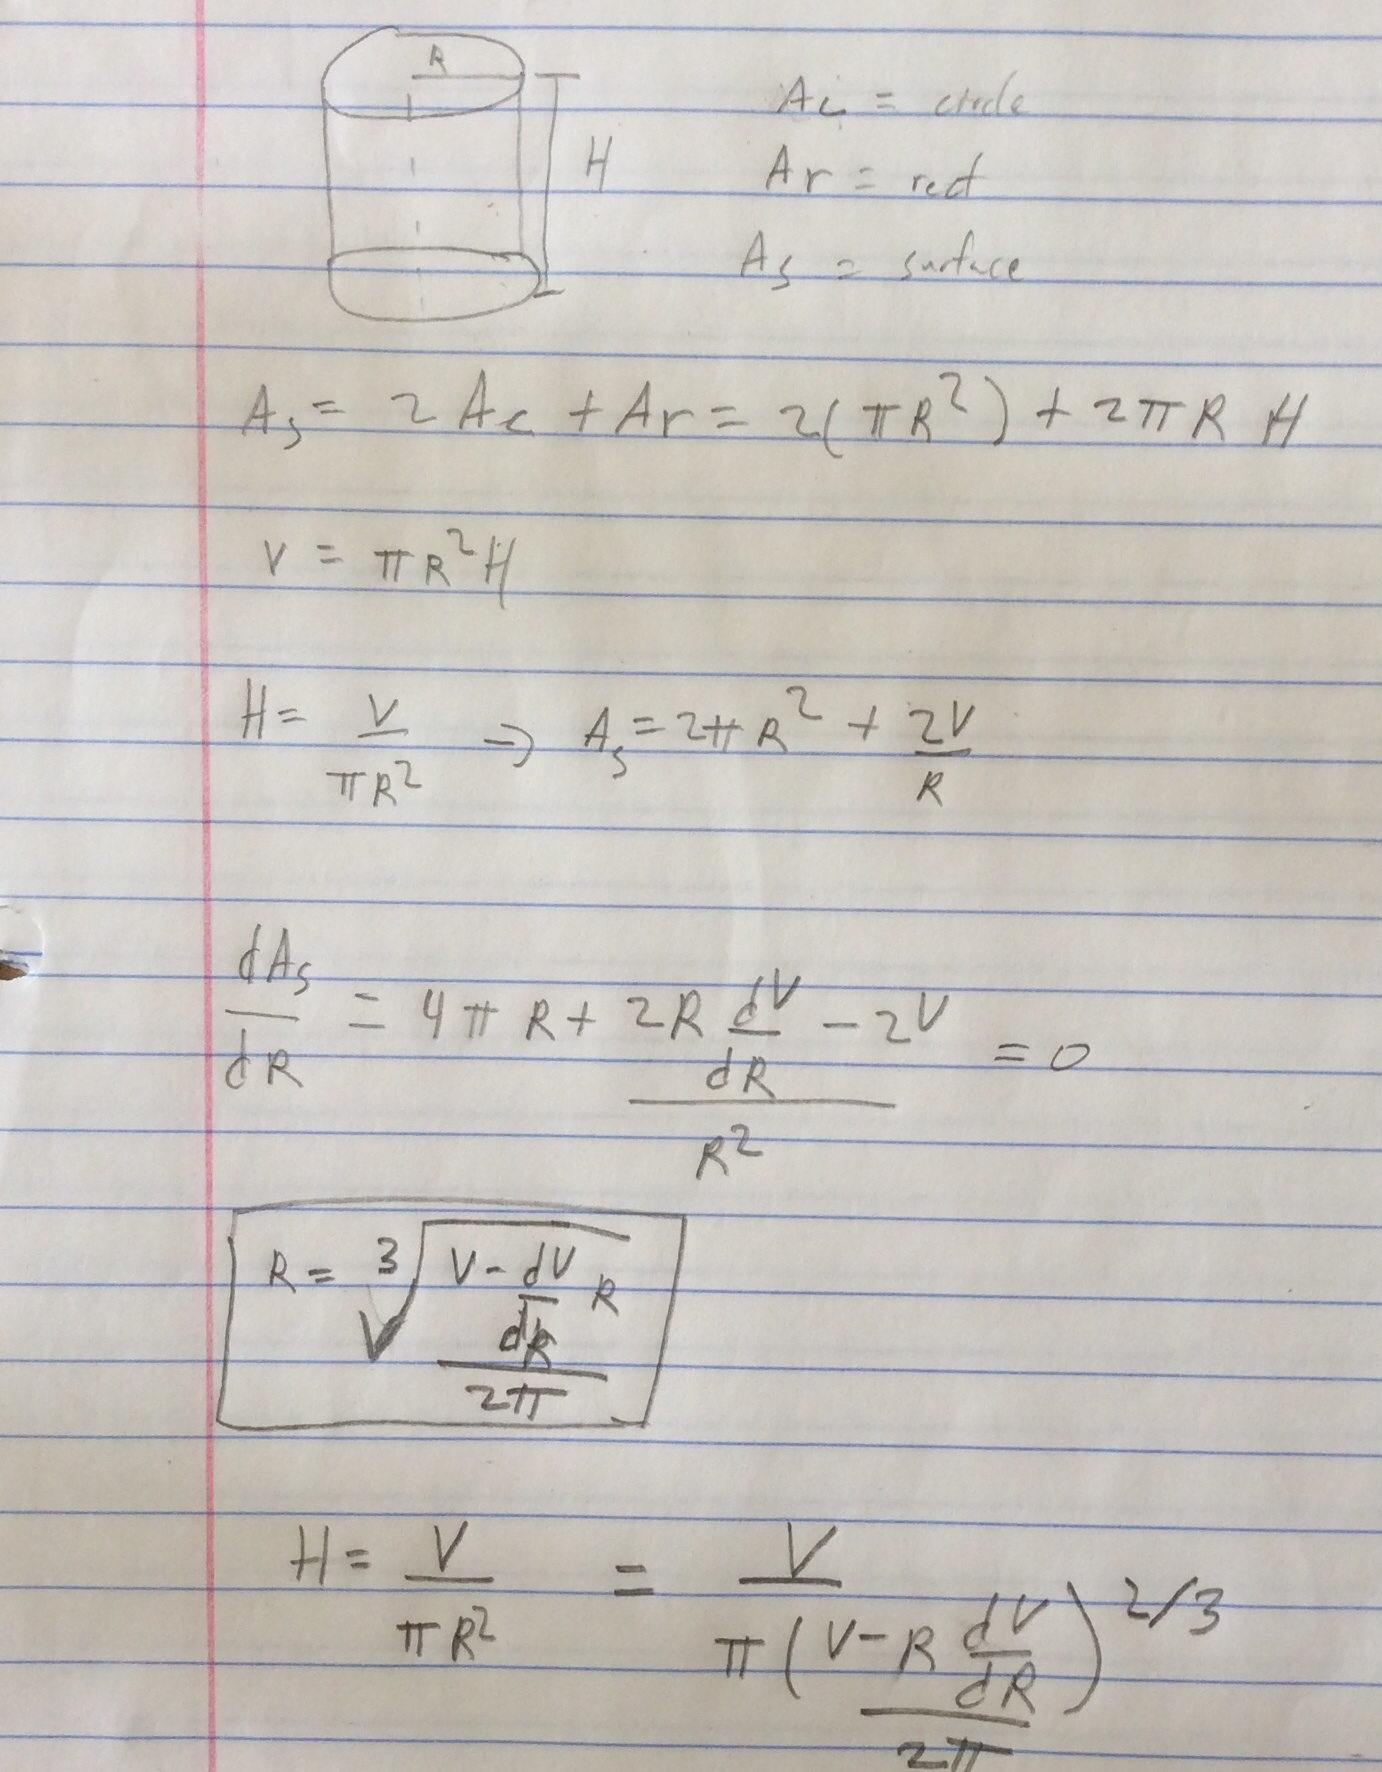 R
H
Ac = circle
Ar = rect
As = surface
As = 2Ac + Ar = 2(πR²) + 2πR H
V = πR²H
H = V/πR² → As = 2πR² + 2V/R
dAs/dR = 4πR + (2R dV/dR - 2V)/R² = 0
R = ³√((V - dV/dR R)/2π)
H = V/πR² = V/π((V - R dV/dR)/2π)^2/3